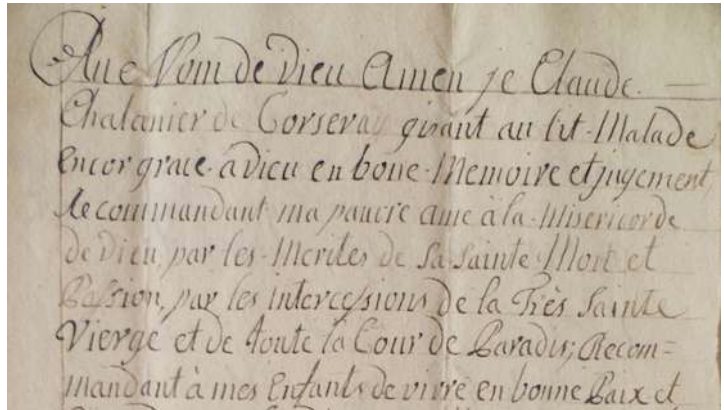 Au Nom de Dieu Amen je Claude. —
Chalanier de Corserey gisant au lit Malade
encor grace à Dieu en bone Memoire et jugement,
Recommandant ma pauvre ame à la Misericorde
de Dieu par les Merites de Sa Sainte Mort et
Passion, par les intercessions de la Très Sainte
Vierge et de toute la Cour de Paradis; Recom=
mandant à mes Enfants de vivre en bonne Paix et